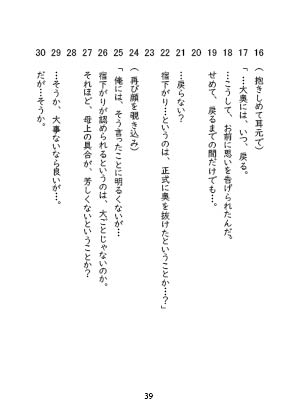 16 （ 抱きしめて耳元で）
17 「 …大奥には、いつ、戻る。
18 …こうして、お前に思いを告げられたんだ。
19 せめて、戻るまでの間だけでも…。
20
21 …戻らない？
22 宿下がり…というのは、正式に奥を抜けたということか…？」
23
24 （ 再び顔を覗き込み）
25 「 俺には、そう言ったことに明るくないが…
26 宿下がりが認められるというのは、大ごとじゃないのか。
27 それほど、母上の具合が、芳しくないということか？
28
29 …そうか、大事ないなら良いが…。
30 だが…そうか。
39